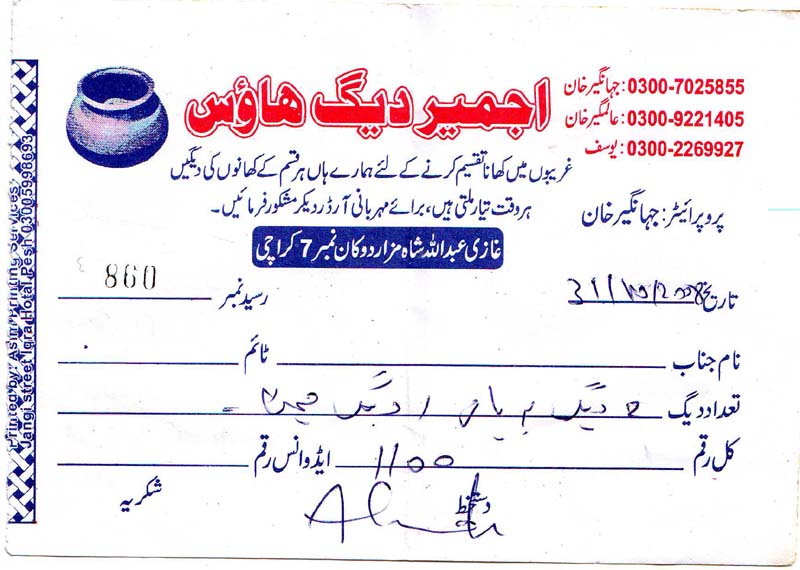 اجمیر دیگ ھاؤس
0300-7025855 : جہانگیر خان
0300-9221405 : عالمگیر خان
0300-2269927 : یوسف
غریبوں میں کھانا تقسیم کرنے کے لئے ہمارے ہاں ہر قسم کے کھانوں کی دیگیں
ہر وقت تیار ملتی ہیں، برائے مہربانی آرڈر دیکر مشکور فرمائیں۔
پروپرائیٹر: جہانگیر خان
غازی عبداللہ شاہ مزار دوکان نمبر 7 کراچی
تاریخ 31/10/2008 رسید نمبر 860
نام جناب ٹائم
تعداد دیگ دیگ
کل رقم 1100 ایڈوانس رقم
دستخط
شکریہ
Printed by: Asim Printing Services
Jangi street Iqra Hotal Pesh 03005998693